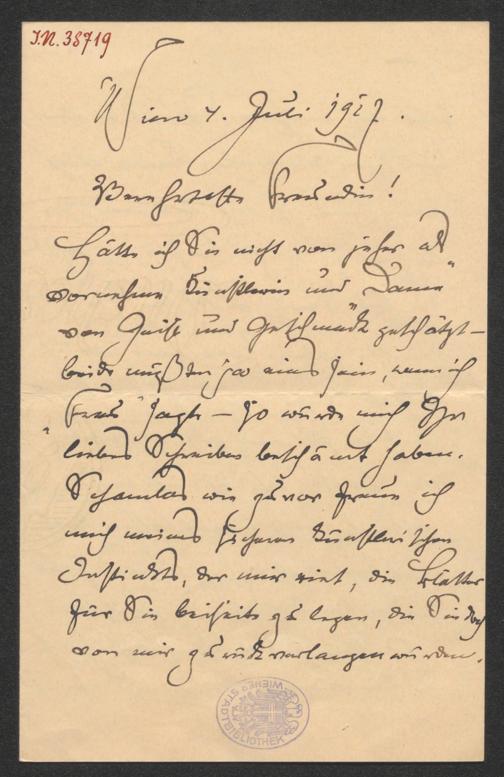 J.N. 38719
Wien 4. Juli 1917.
Verehrteste Freundin!
Hätte ich Sie nicht von jeher als
vornehme Künstlerin und „Dame“
von Geist und Geschmack geschätzt –
beide müßten ja eins sein, wenn ich
„Frau“ sagte – so würde mich Ihr
liebes Schreiben beschämt haben.
Schamlos wie zuvor freue ich
mich meines sicheren künstlerischen
Instinkts, der mir riet, die Blätter
für Sie beiseite zu legen, die Sie doch
von mir zurückverlangen würden.
WIENER STADTBIBLIOTHEK